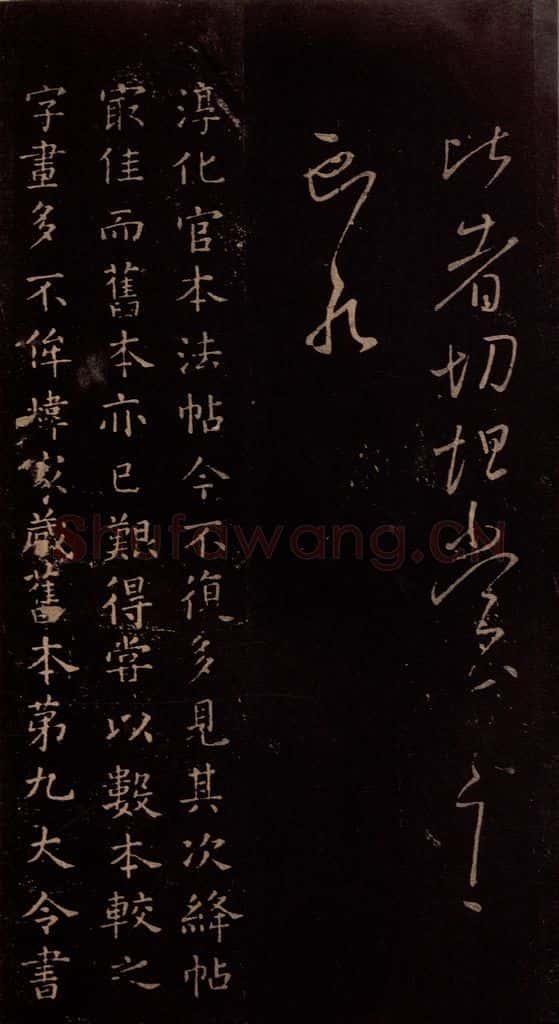 比者切
淳化官本法帖今不復多見其次絳帖
冣佳而舊本亦已艱得嘗以數本較之
字畫多不侔煒家藏舊本第九大令書
Shufawang.CN